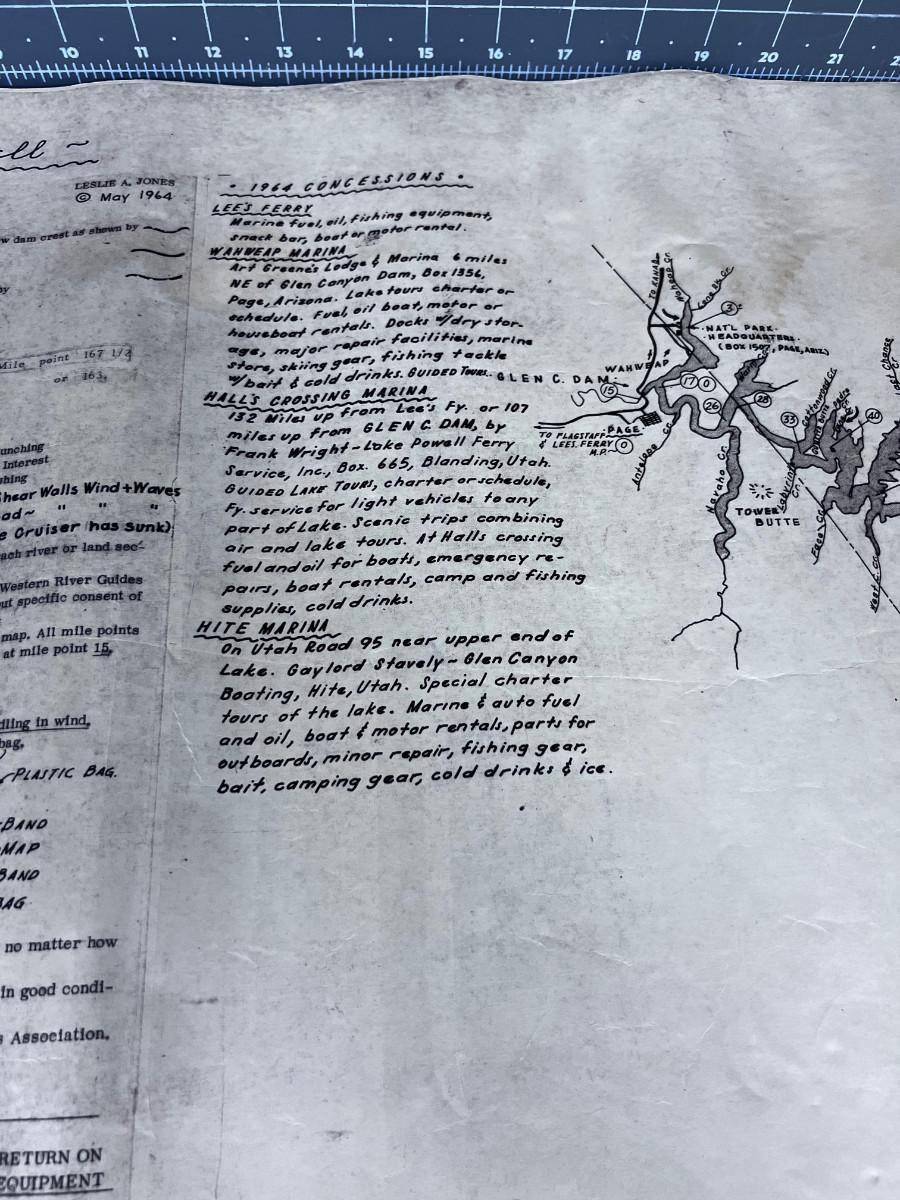 9 10 11 12 13 14 15 16 17 18 19 20 21
ell ~
LESLIE A. JONES
© May 1964
w dam crest as shown by
by
Mile point 167 1/2
or 163,
unching
Interest
hing
Shear Walls Wind + Waves
ad ~ " " "
e Cruiser (has sunk)
ach river or land sec-
Western River Guides
ut specific consent of
map. All mile points
at mile point 15,
dling in wind,
bag,
PLASTIC BAG.
BAND
MAP
BAND
BAG
no matter how
in good condi-
s Association.
RETURN ON
EQUIPMENT
• 1964 CONCESSIONS •
LEE'S FERRY
Marine fuel, oil, fishing equipment,
snack bar, boat or motor rental.
WAHWEAP MARINA
Art Greene's Lodge & Marina 6 miles
NE of Glen Canyon Dam, Box 1356,
Page, Arizona. Lake tours charter or
schedule. Fuel, oil boat, motor or
houseboat rentals. Docks w/dry stor-
age, major repair facilities, marine
store, skiing gear, fishing tackle
w/bait & cold drinks. GUIDED TOURS.
HALL'S CROSSING MARINA
132 Miles up from Lee's Fy. or 107
miles up from GLEN C. DAM, by
Frank Wright-Lake Powell Ferry
Service, Inc., Box. 665, Blanding, Utah.
GUIDED LAKE TOURS, charter or schedule,
Fy. service for light vehicles to any
part of Lake. Scenic trips combining
air and lake tours. At Halls crossing
fuel and oil for boats, emergency re-
pairs, boat rentals, camp and fishing
supplies, cold drinks.
HITE MARINA
On Utah Road 95 near upper end of
Lake. Gaylord Stavely ~ Glen Canyon
Boating, Hite, Utah. Special charter
tours of the lake. Marine & auto fuel
and oil, boat & motor rentals, parts for
outboards, minor repair, fishing gear,
bait, camping gear, cold drinks & ice.
TO KANAB
Wahweap Cr.
3
NAT'L PARK
HEADQUARTERS
(BOX 1507, PAGE, ARIZ)
WAHWEAP
GLEN C. DAM
15
17
0
26
28
Warm Cr.
PAGE
TO FLAGSTAFF
& LEES FERRY
M.P. 0
Antelope Cr.
Navaho Cr.
TOWER
BUTTE
33
Cottonwood Cr.
40
Labyrinth
Cr.
Face C.
West C.
Last Chance
Cr.